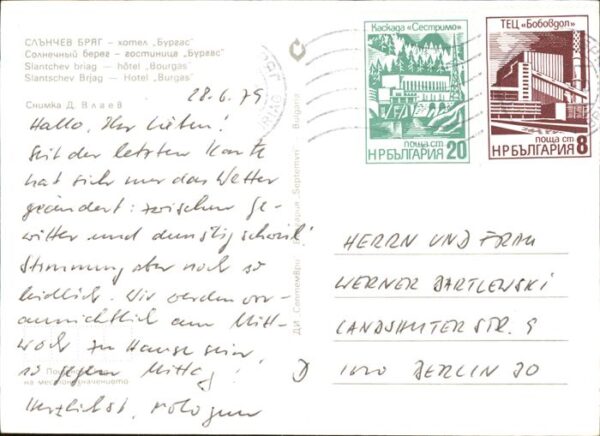 СЛЪНЧЕВ БРЯГ – хотел „Бургас“
Солнечный берег – гостиница „Бургас“
Slantchev briag – hôtel „Bourgas“
Slantschev Brjag – Hotel „Burgas“
Снимка Д. Влаев
28.6.79
Hallo, Ihr Lieben!
Seit der letzten Karte
hat sich nur das Wetter
geändert: zwischen Ge-
witter und dunstig schwül!
Stimmung aber noch so
leidlich. Wir werden vor-
aussichtlich am Mitt-
woch zu Hause sein,
so gegen Mittag!
Herzlichst,
на местоназначението
ДИ „Септември“ България · Septemvri Bulgaria
Каскада „Сестримо“
поща ст
НР БЪЛГАРИЯ 20
ТЕЦ „Бобовдол“
поща ст
НР БЪЛГАРИЯ 8
HERRN UND FRAU
WERNER BARTLEWSKI
LANDSHUTER STR. 9
D 1000 BERLIN 30